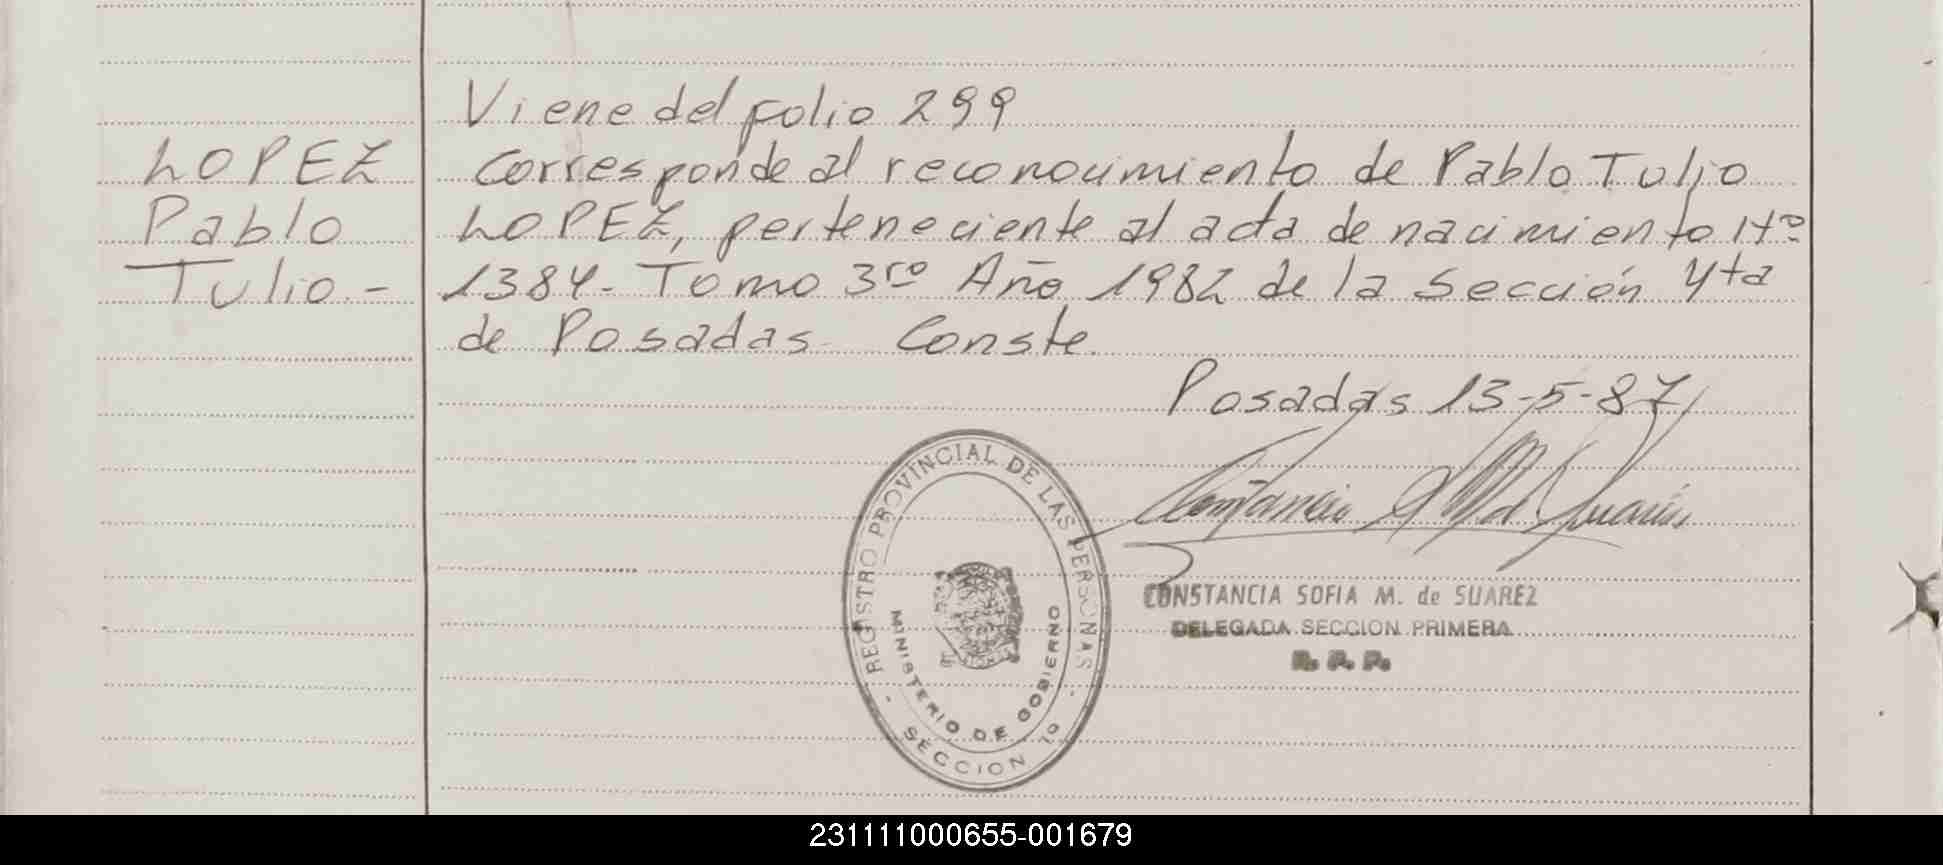 Viene del folio 299
LOPEZ
Pablo
Tulio.-
Corresponde al reconocimiento de Pablo Tulio
LOPEZ, perteneciente al acta de nacimiento Nº
1384- Tomo 3ro Año 1982 de la Sección 4ta
de Posadas- Conste.
Posadas 13-5-87
REGISTRO PROVINCIAL DE LAS PERSONAS
MINISTERIO DE GOBIERNO
SECCION 1º
CONSTANCIA SOFIA M. de SUAREZ
DELEGADA SECCION PRIMERA
R. P. P.
231111000655-001679